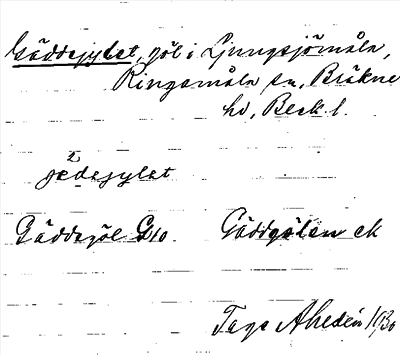 Gäddejylet, göl i Ljungsjömåla,
Ringamåla sn, Bräkne
hd, Blek. l.
jedejylet
Gäddegöl G10. Gäddgölen ek
Tage Ahldén 1930